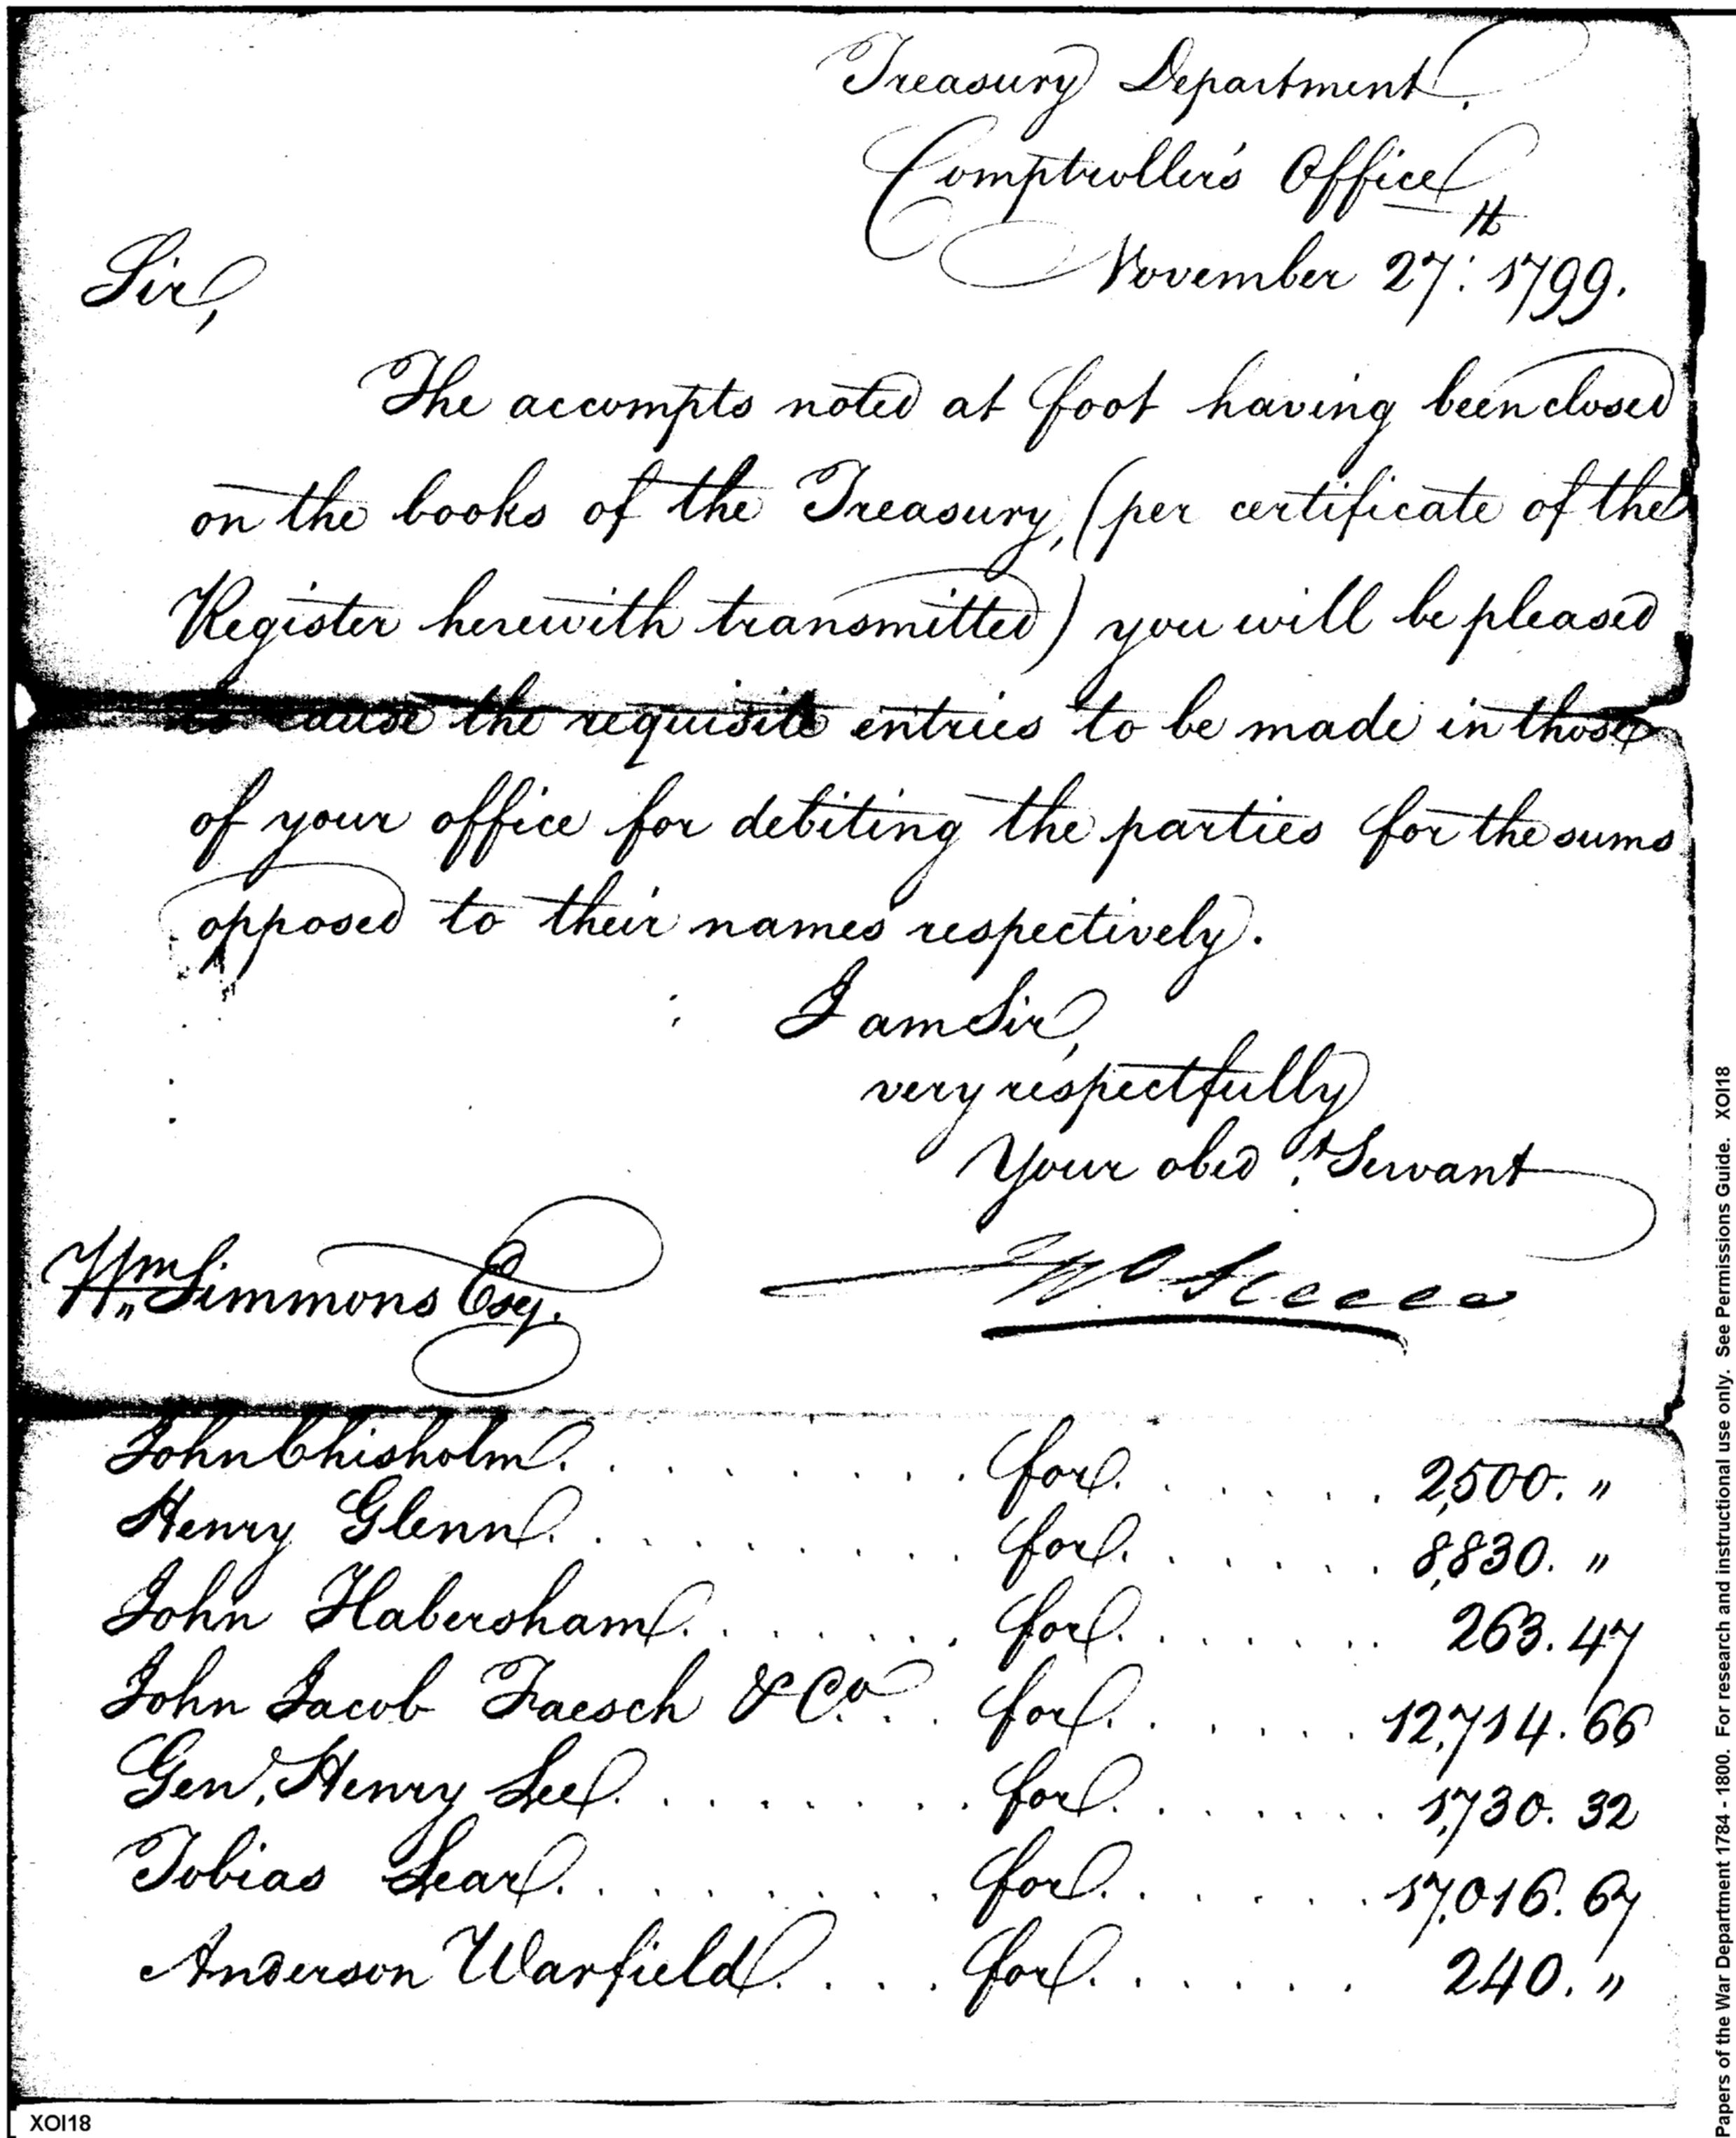 Treasury Department.
Comptroller's Office
November 27th 1799.
Sir,
The accompts noted at foot having been closed
on the books of the Treasury, (per certificate of the
Register herewith transmitted) you will be pleased
to cause the requisite entries to be made in those
of your office for debiting the parties for the sums
opposed to their names respectively.
I am Sir,
very respectfully
Your obed.t Servant
Wm Simmons Esq.
Jno Steele
John Chisholm. . . . . . . . . for. . . . . . 2,500. "
Henry Glenn. . . . . . . . . for. . . . . . 8,830. "
John Habersham. . . . . . . for. . . . . . . 263. 47
John Jacob Faesch & Co. . . for. . . . . . 12,714. 66
Gen. Henry Lee. . . . . . . . for. . . . . . . 1,730. 32
Tobias Lear. . . . . . . . . for. . . . . . 17,016. 67
Anderson Warfield. . . . for. . . . . . 240. "
XOI18
Papers of the War Department 1784 - 1800. For research and instructional use only. See Permissions Guide. XOI18